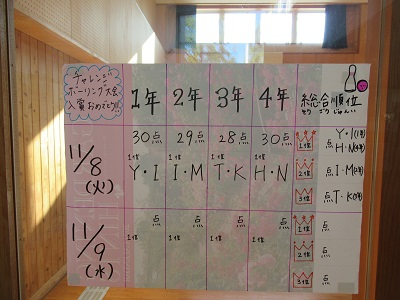 チャレンジ
ボーリング大会
入賞おめでとう!!
1年 2年 3年 4年 総合順位
そう ごう じゅんい
11/8
(火)
30点 29点 28点 30点
1位 1位 1位 1位
Y・I I・M T・K H・N
1位 点 Y・I(1年)
H・N(4年)
2位 点 I・M(2年)
3位 点 T・K(3年)
11/9
(水)
点 点 点 点
1位 1位 1位 1位
1位 点
2位 点
3位 点